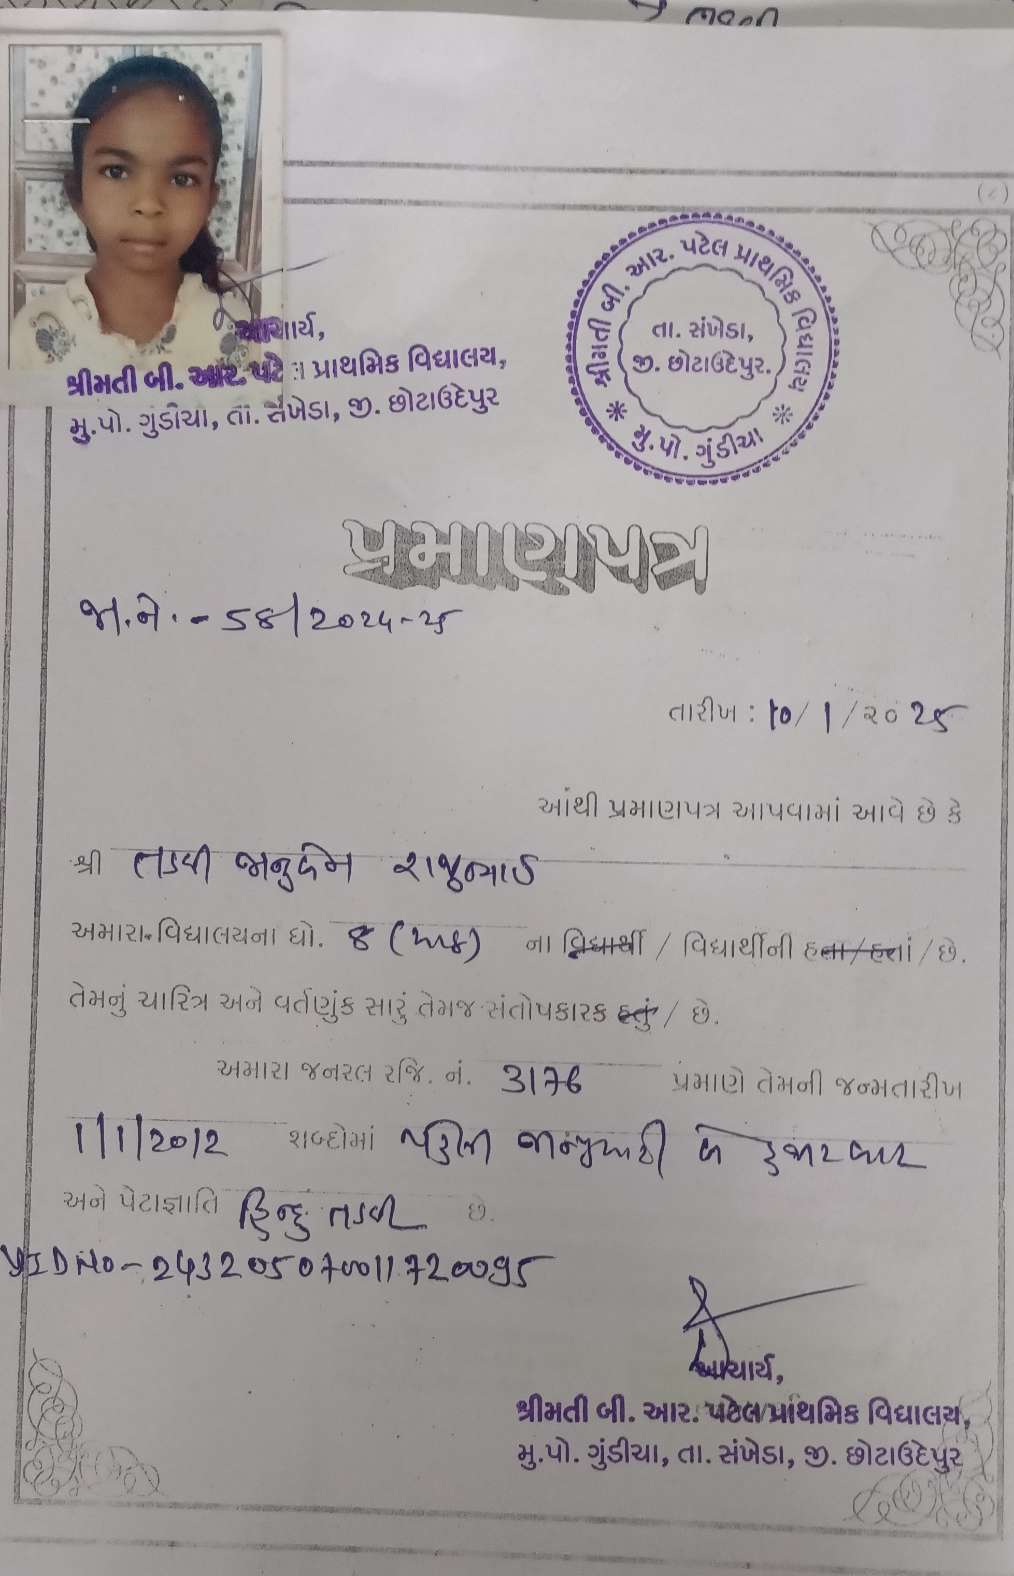 આચાર્ય,
શ્રીમતી બી. આર. પટેલ પ્રાથમિક વિદ્યાલય,
મુ.પો. ગુંડીચા, તા. સંખેડા, જી. છોટાઉદેપુર
શ્રીમતી બી. આર. પટેલ પ્રાથમિક વિદ્યાલય
તા. સંખેડા,
જી. છોટાઉદેપુર.
* મુ.પો. ગુંડીચા *
પ્રમાણપત્ર
જા.નં. - 58/2024-25
તારીખ : 10/1/૨૦25
આથી પ્રમાણપત્ર આપવામાં આવે છે કે
શ્રી તડવી રાજુભાઈ
અમારા વિદ્યાલયના ધો. 8 (આઠ) ના વિદ્યાર્થી / વિદ્યાર્થીની હતા/હતાં/છે.
તેમનું ચારિત્ર અને વર્તણુંક સારું તેમજ સંતોષકારક હતું/ છે.
અમારા જનરલ રજિ. નં. 3176 પ્રમાણે તેમની જન્મતારીખ
1/1/2012 શબ્દોમાં પહેલી જાન્યુઆરી બે હજાર બાર
અને પેટાજ્ઞાતિ હિન્દુ તડવી છે.
UID NO - 243205070011720095
આચાર્ય,
શ્રીમતી બી. આર. પટેલ પ્રાથમિક વિદ્યાલય,
મુ.પો. ગુંડીચા, તા. સંખેડા, જી. છોટાઉદેપુર